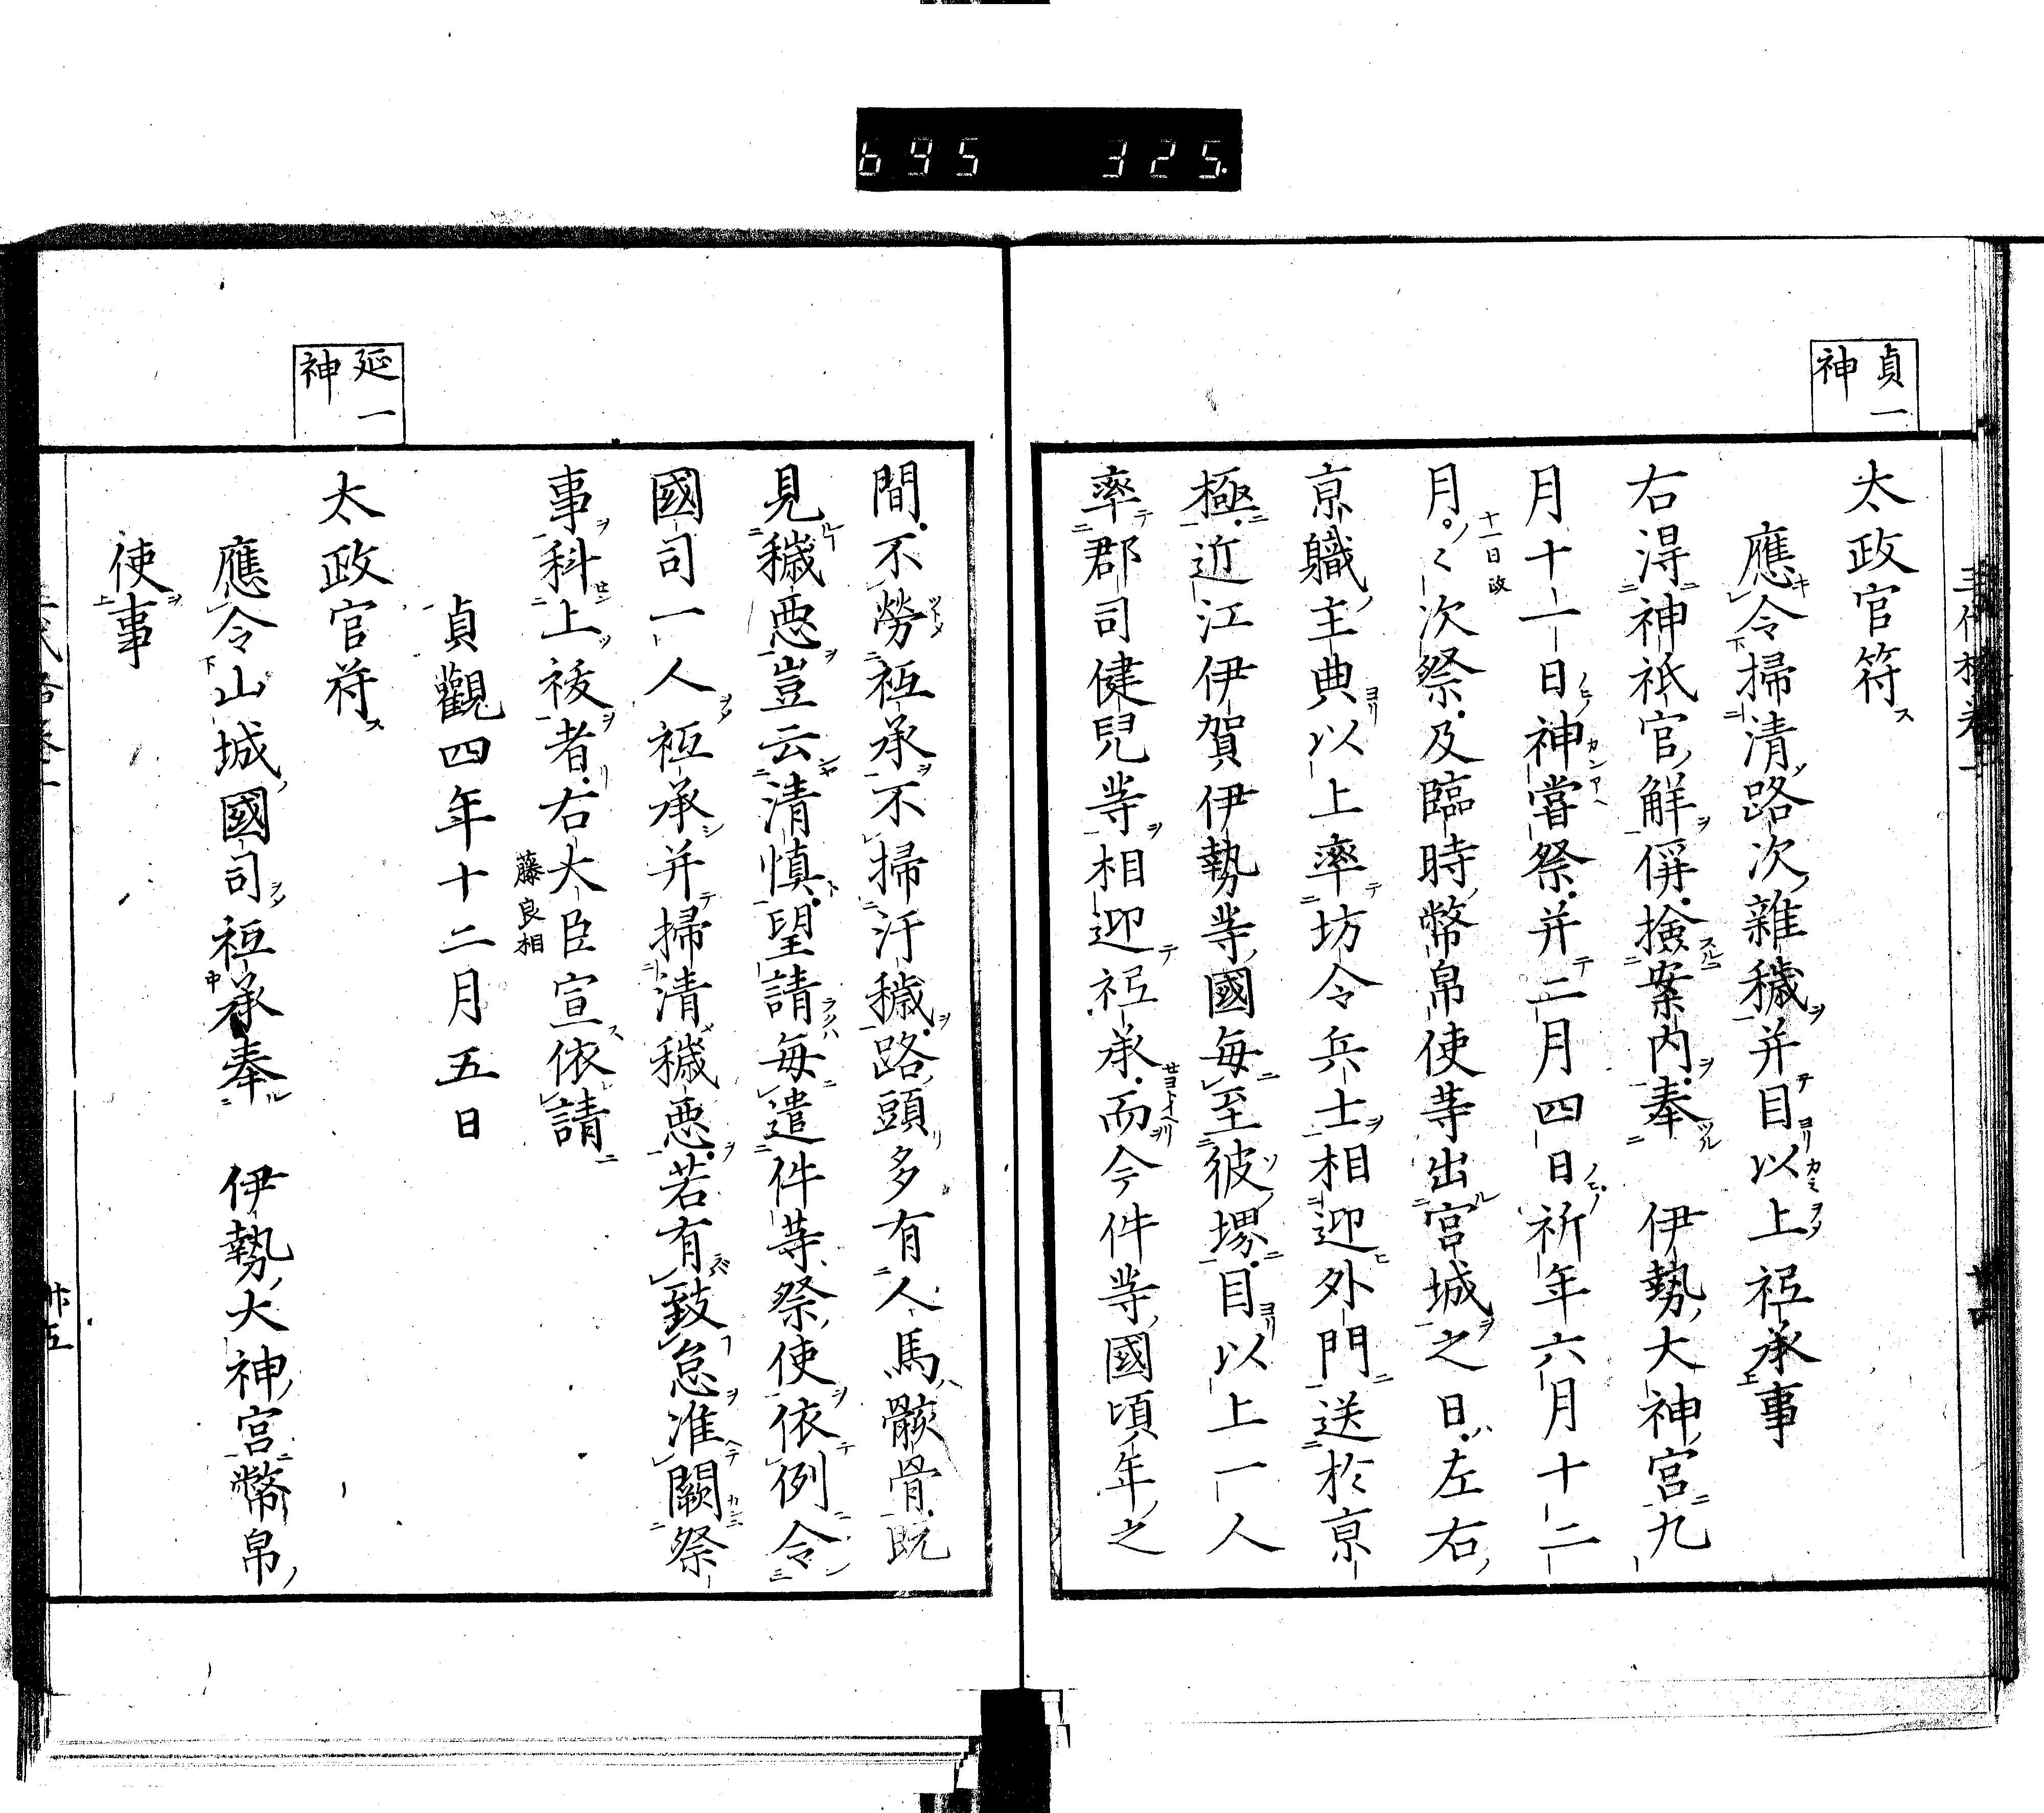 695 325.
貞一
神
太政官符
應令掃清路次雜穢并目以上祗承事
右得神祇官解偁撿案内奉 伊勢大神宮九
月十一日神嘗祭并二月四日祈年六月十二
月〻次祭及臨時幣帛使等出宮城之日左右
十一日政
京職主典以上率坊令兵士相迎外門送於京
極近江伊賀伊勢等國每至彼堺目以上一人
率郡司健兒等相迎祗承而今件等國頃年之
延一
神
間不勞祗承不掃汙穢路頭多有人馬骸骨既
見穢惡豈云清慎望請每遣件等祭使依例令
國司一人祗承并掃清穢惡若有致怠准闕祭
事科上祓者右大臣宣依請
藤良相
貞觀四年十二月五日
太政官符
應令山城國司祗承奉 伊勢大神宮幣帛
使事